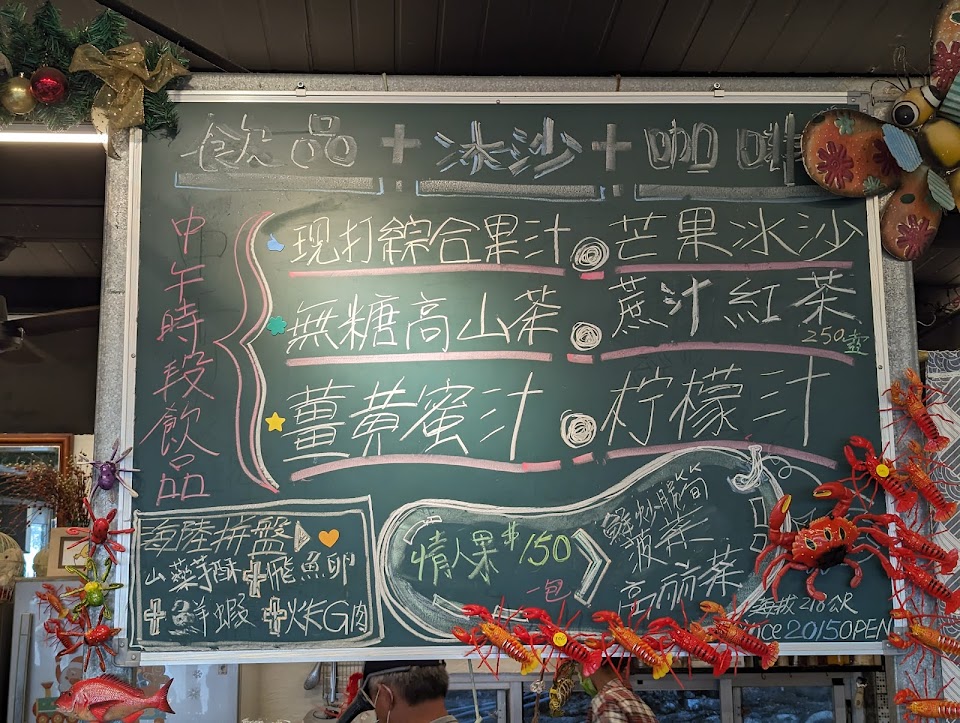 飲品+冰沙+咖啡
中午時段飲品
現打綜合果汁 芒果冰沙
無糖高山茶 蔗汁紅茶
250壺
薑黃蜜汁 柠檬汁
海陸拼盤
山藥芋酥+飛魚卵
+洋蝦+炊G肉
情人果$150
一包
鹹炒脆筍
波菜
高丽菜
海拔218公尺
ince 2015OPEN